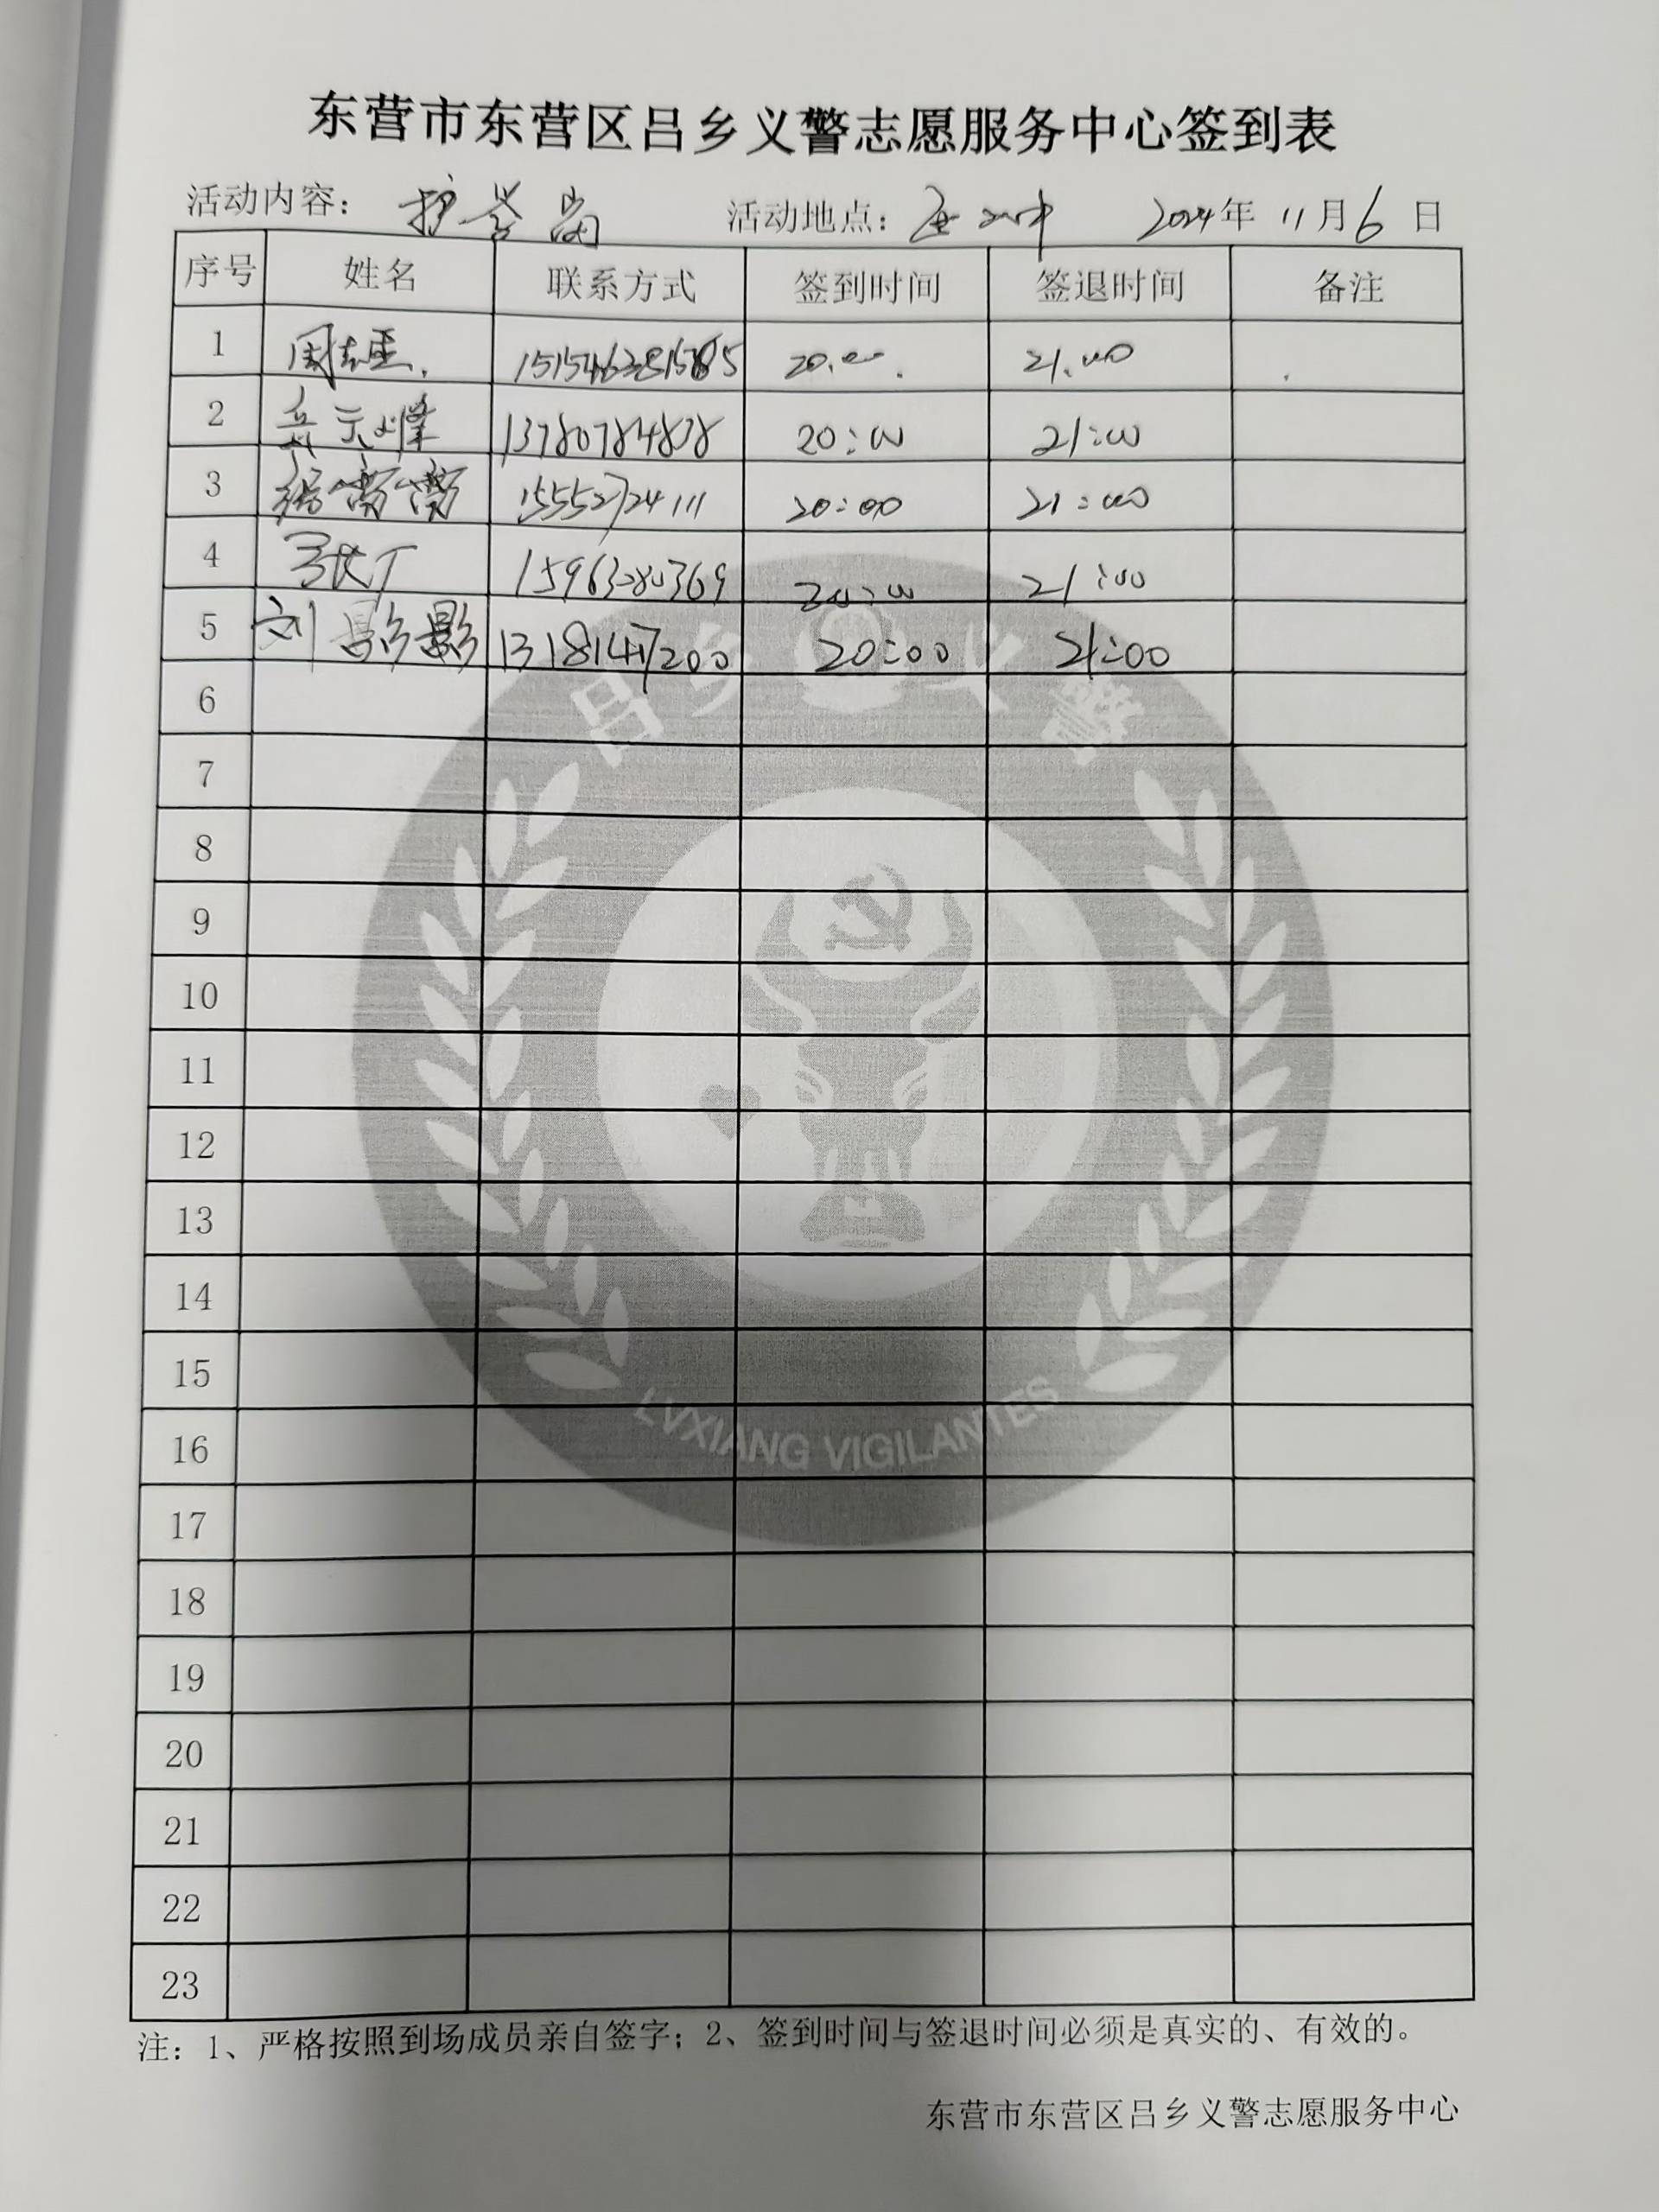 东营市东营区吕乡义警志愿服务中心签到表
活动内容： 护学岗 活动地点： 2024年 11月6日
序号 姓名 联系方式 签到时间 签退时间 备注
1 20:00 21:00
2 13780784878 20:00 21:00
3 15552724111 20:00 21:00
4 20:00 21:00
5 刘影影 13181477200 20:00 21:00
6
7
8
9
10
11
12
13
14
15
16
17
18
19
20
21
22
23
吕乡义警
LVXIANG VIGILANTES
注：1、严格按照到场成员亲自签字；2、签到时间与签退时间必须是真实的、有效的。
东营市东营区吕乡义警志愿服务中心